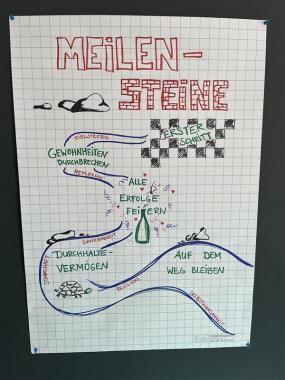 MEILEN-
STEINE
ERSTER
SCHRITT
ZIELSTREBIG
GEWOHNHEITEN
DURCHBRECHEN
REFLEXION
ALLE
ERFOLGE
FEIERN
DANKBARKEIT
DURCHHALTE-
VERMÖGEN
AUF DEM
WEG BLEIBEN
RESILIENZ